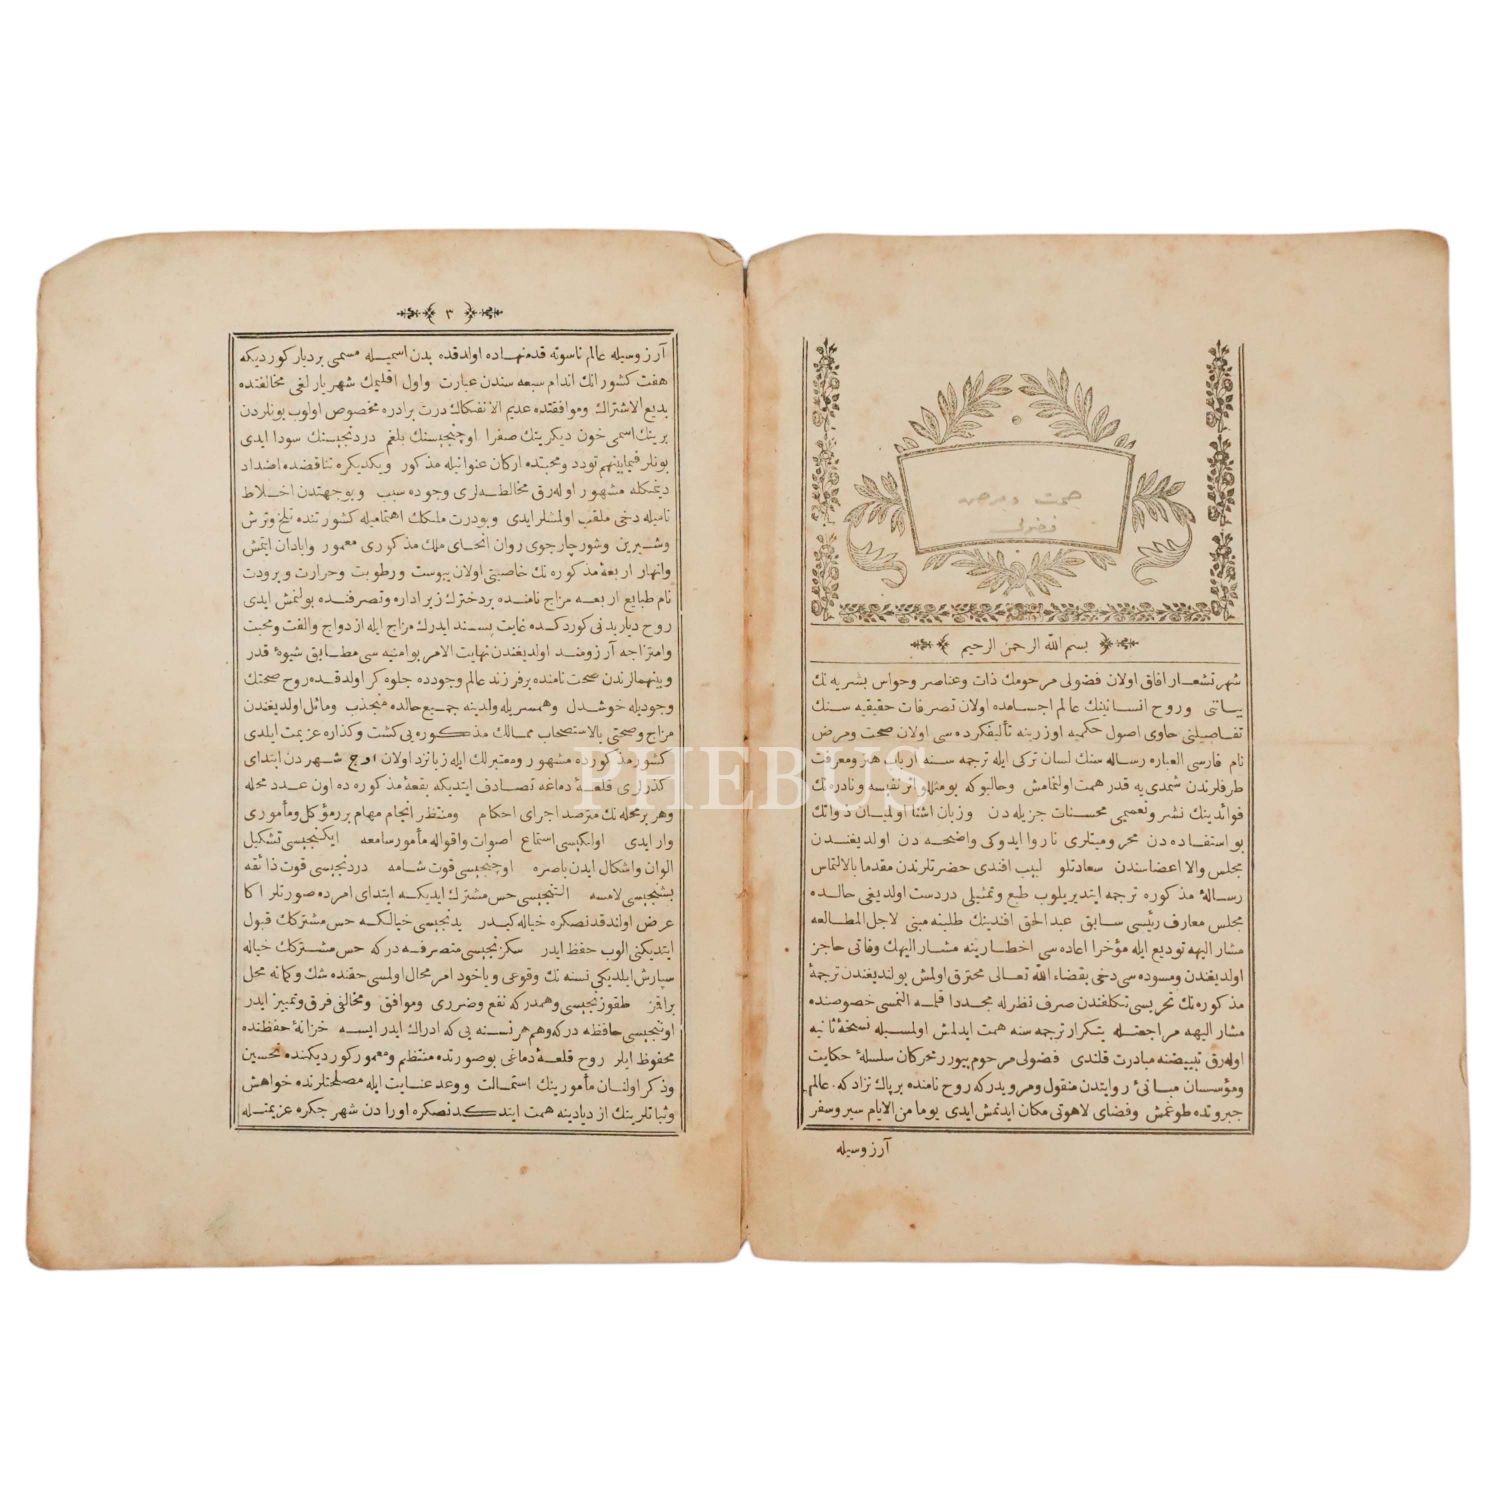 صحت ومرض
فضولی
بسم الله الرحمن الرحیم
شهرتشعار افاق اولان فضولی مرحومك ذات وعناصر وحواس بشریه نك
بیاننی وروح انسانینك عالم اجسامده اولان تصرفات حقیقیه سنك
تفاصیلنی حاوی اصول حکمیه اوزرینه تألیفکرده سی اولان صحت ومرض
نام فارسی العباره رساله سنك لسان ترکی ایله ترجمه سنه ارباب هنر ومعرفت
طرفلرندن شمدی یه قدر همت اولنمامش وحالبوکه بومثللو اثر نفیسه ونادره نك
فوائدینك نشر وتعمیمی محسنات جزیله دن وزبان اشنا اولمیان ذواتك
بو استفاده دن محرومیتلری ناروا ایدوکی واضحه دن اولدیغندن
مجلس والا اعضاسندن سعادتلو لبیب افندی حضرتلرندن مقدما بالالتماس
رسالۀ مذکوره ترجمه ایتدیریلوب طبع وتمثیلی دردست اولدیغی حالده
مجلس معارف رئیسی سابق عبد الحق افندینك طلبنه مبنی لاجل المطالعه
مشار الیهه تودیع ایله مؤخرا اعاده سی اخطارینه مشار الیهك وفاتی حاجز
اولدیغندن ومسوده سی دخی بقضاء الله تعالی محترق اولمش بولندیغندن ترجمۀ
مذکوره نك تحریسی تکلفندن صرف نظرله مجددا قلمه النمسی خصوصنده
مشار الیهه مراجعتله بتکرار ترجمه سنه همت ایدلمش اولمسیله نسخۀ ثانیه
اوله رق تبییضنه مبادرت قلندی فضولی مرحوم بیوررمحرکان سلسلۀ حکایت
ومؤسسان مبانئ روایتدن منقول ومرویدرکه روح نامنده برپاك نژادکه عالم
جبروتده طوغمش وفضای لاهوتی مکان ایدنمش ایدی یوما من الایام سیر وسفر
آرزوسیله
٣
آرزوسیله عالم ناسوته قدمنهاده اولدقده بدن اسمیله مسمی بردیار کوردیکه
هفت کشور انك اندام سبعه سندن عبارت واول اقلیمك شهریارلغی مخالفتده
بدیع الاشتراك وموافقتده عدیم الانفکاك درت برادره مخصوص اولوب بونلردن
برینك اسمی خون دیکرینك صفرا اوچنجیسنك بلغم دردنجیسنك سودا ایدی
بونلر فیمابینهم تودد ومحبتده ارکان عنوانیله مذکور ویکدیکره تناقضده اضداد
دیمکله مشهور اوله رق مخالطه لری وجوده سبب وبوجهتدن اخلاط
نامیله دخی ملقب اولمشلر ایدی وبودرت ملکك اهتمامیله کشور تنده تلخ وترش
وشیرین وشور چارجوی روان انحای ملك مذکوری معمور وابادان ایتمش
وانهار اربعۀ مذکوره نك خاصیتی اولان یبوست ورطوبت وحرارت وبرودت
نام طبایع اربعه مزاج نامنده بردخترك زیر اداره وتصرفنده بولنمش ایدی
روح دیار بدنی کوردکده غایت پسند ایدرك مزاج ایله ازدواج والفت ومحبت
وامتزاجه آرزومند اولدیغندن نهایت الامر بوامنیه سی مطابق شیوۀ قدر
وبینهمالرندن صحت نامنده برفرزند عالم وجودده جلوه کر اولدقده روح صحتك
وجودیله خوشدل وهمسریله ولدینه جمیع حالده منجذب ومائل اولدیغندن
مزاج وصحتی بالاستصحاب ممالك مذکوره یی کشت وکذاره عزیمت ایلدی
کشور مذکورده مشهور ومعتبرلك ایله زبانزد اولان اوچ شهردن ابتدای
کذرلری قلعۀ دماغه تصادف ایتدیکه بقعۀ مذکوره ده اون عدد محله
وهر برمحله نك مترصد اجرای احکام ومنتظر انجام مهام برر مؤکل ومأموری
وار ایدی اولکیسی استماع اصوات واقواله مأمور سامعه ایکنجیسی تشکیل
الوان واشکال ایدن باصره اوچنجیسی قوت شامه دردنجیسی قوت ذائقه
بشنجیسی لامسه التنجیسی حس مشترك ایدیکه ابتدای امرده صورتلر اکا
عرض اولندقدنصکره خیاله کیدر یدنجیسی خیالکه حس مشترکك قبول
ایتدیکنی الوب حفظ ایدر سکزنجیسی متصرفه درکه حس مشترکك خیاله
سپارش ایلدیکی نسنه نك وقوعی ویاخود امر محال اولمسی حقنده شك وکمانه محل
براقمز طقوزنجیسی وهمدرکه نفع وضرری وموافق ومخالفی فرق وتمییز ایدر
اوننجیسی حافظه درکه وهم هر نسنه یی که ادراك ایدر ایسه خزانۀ حفظنده
محفوظ ایلر روح قلعۀ دماغی بوصورتده منتظم ومعمور کوردیکنده تحسین
وذکر اولنان مأمورینك استمالت ووعد عنایت ایله مصلحتلرنده خواهش
وثباتلرینك ازدیادینه همت ایتدکدنصکره اورادن شهر جکره عزیمتله
PHEBUS